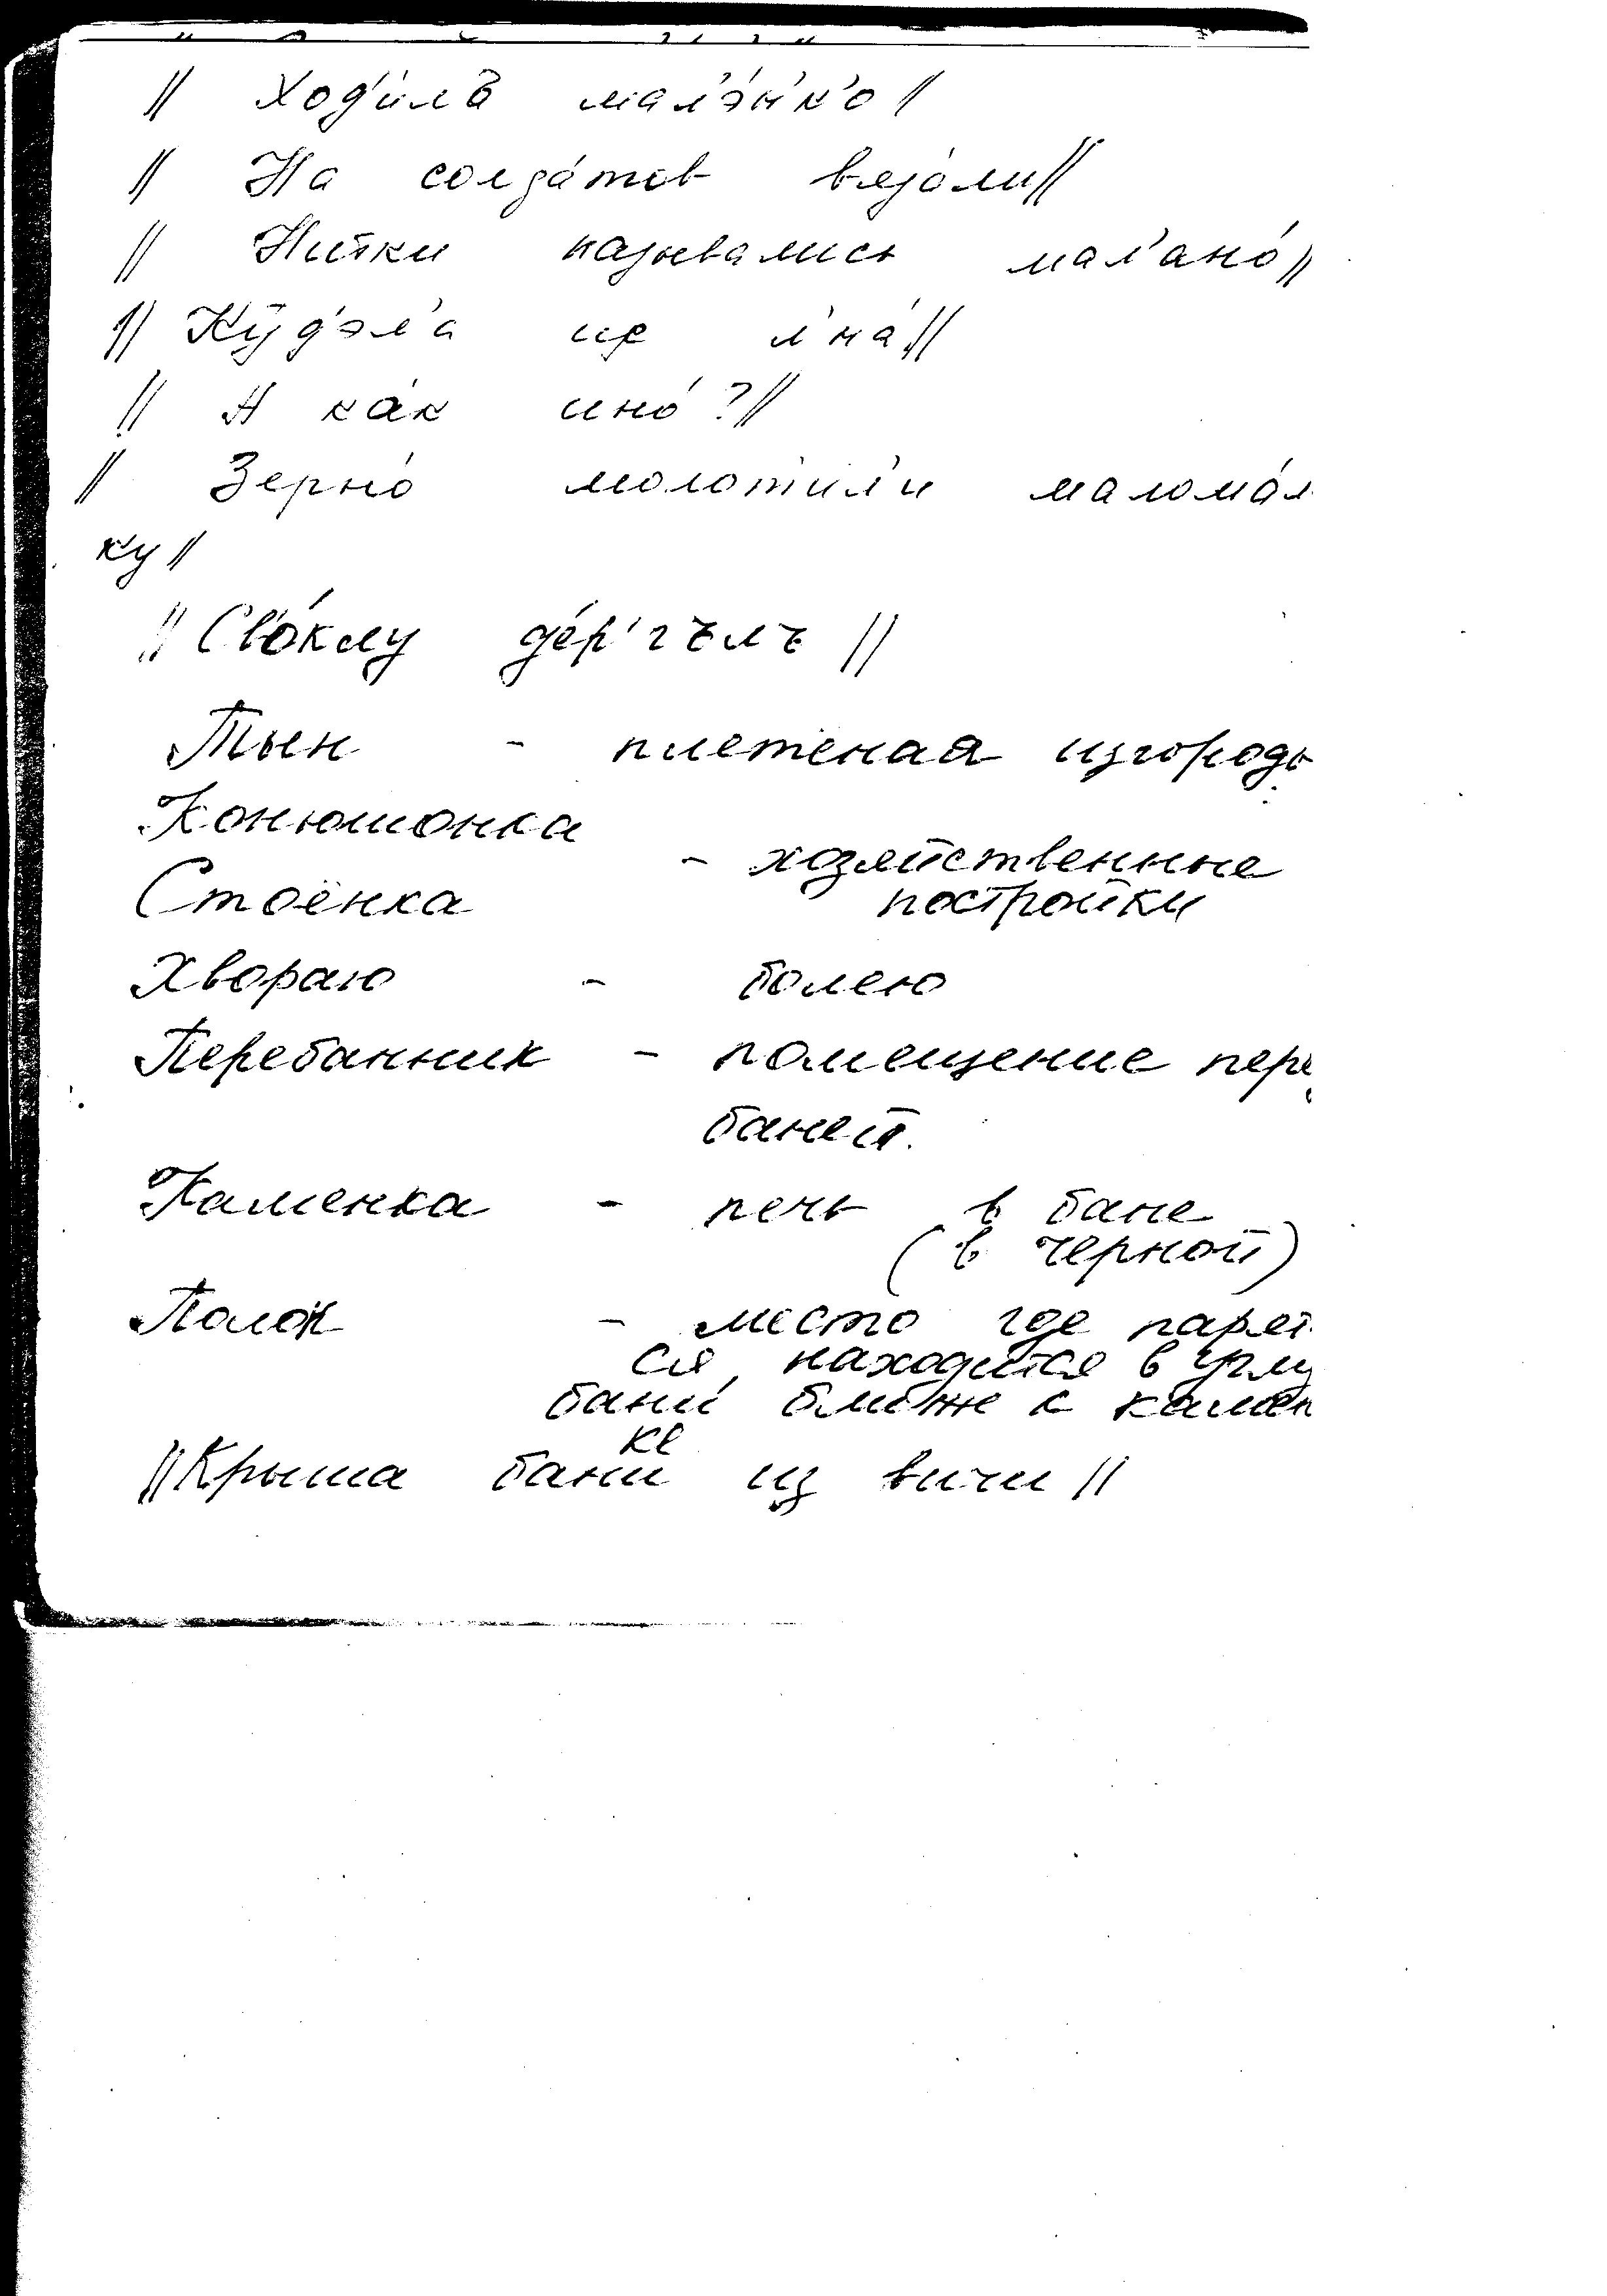 // Ход'ила мал'э́н'к'о /
// На солда́тов вязали //
// Нитки назывались мал'ано́ //
// Ку́д'эл'а из л'на́ //
// А ка́к ино́? //
// Зерно́ молотил'и маломал
ку //
// Св'о́клу дёр'гълъ //
Тын - плетеная изгородь
Конюшонка
- хозяйственные
Стоёнка постройки
Хвораю - болею
Перебанник - помещение пере
баней.
Каменка - печь в бане
(в черной)
Полок - место где парят
ся, находится в углу
бани ближе к камен
ке
// Крыша бани из вичи //